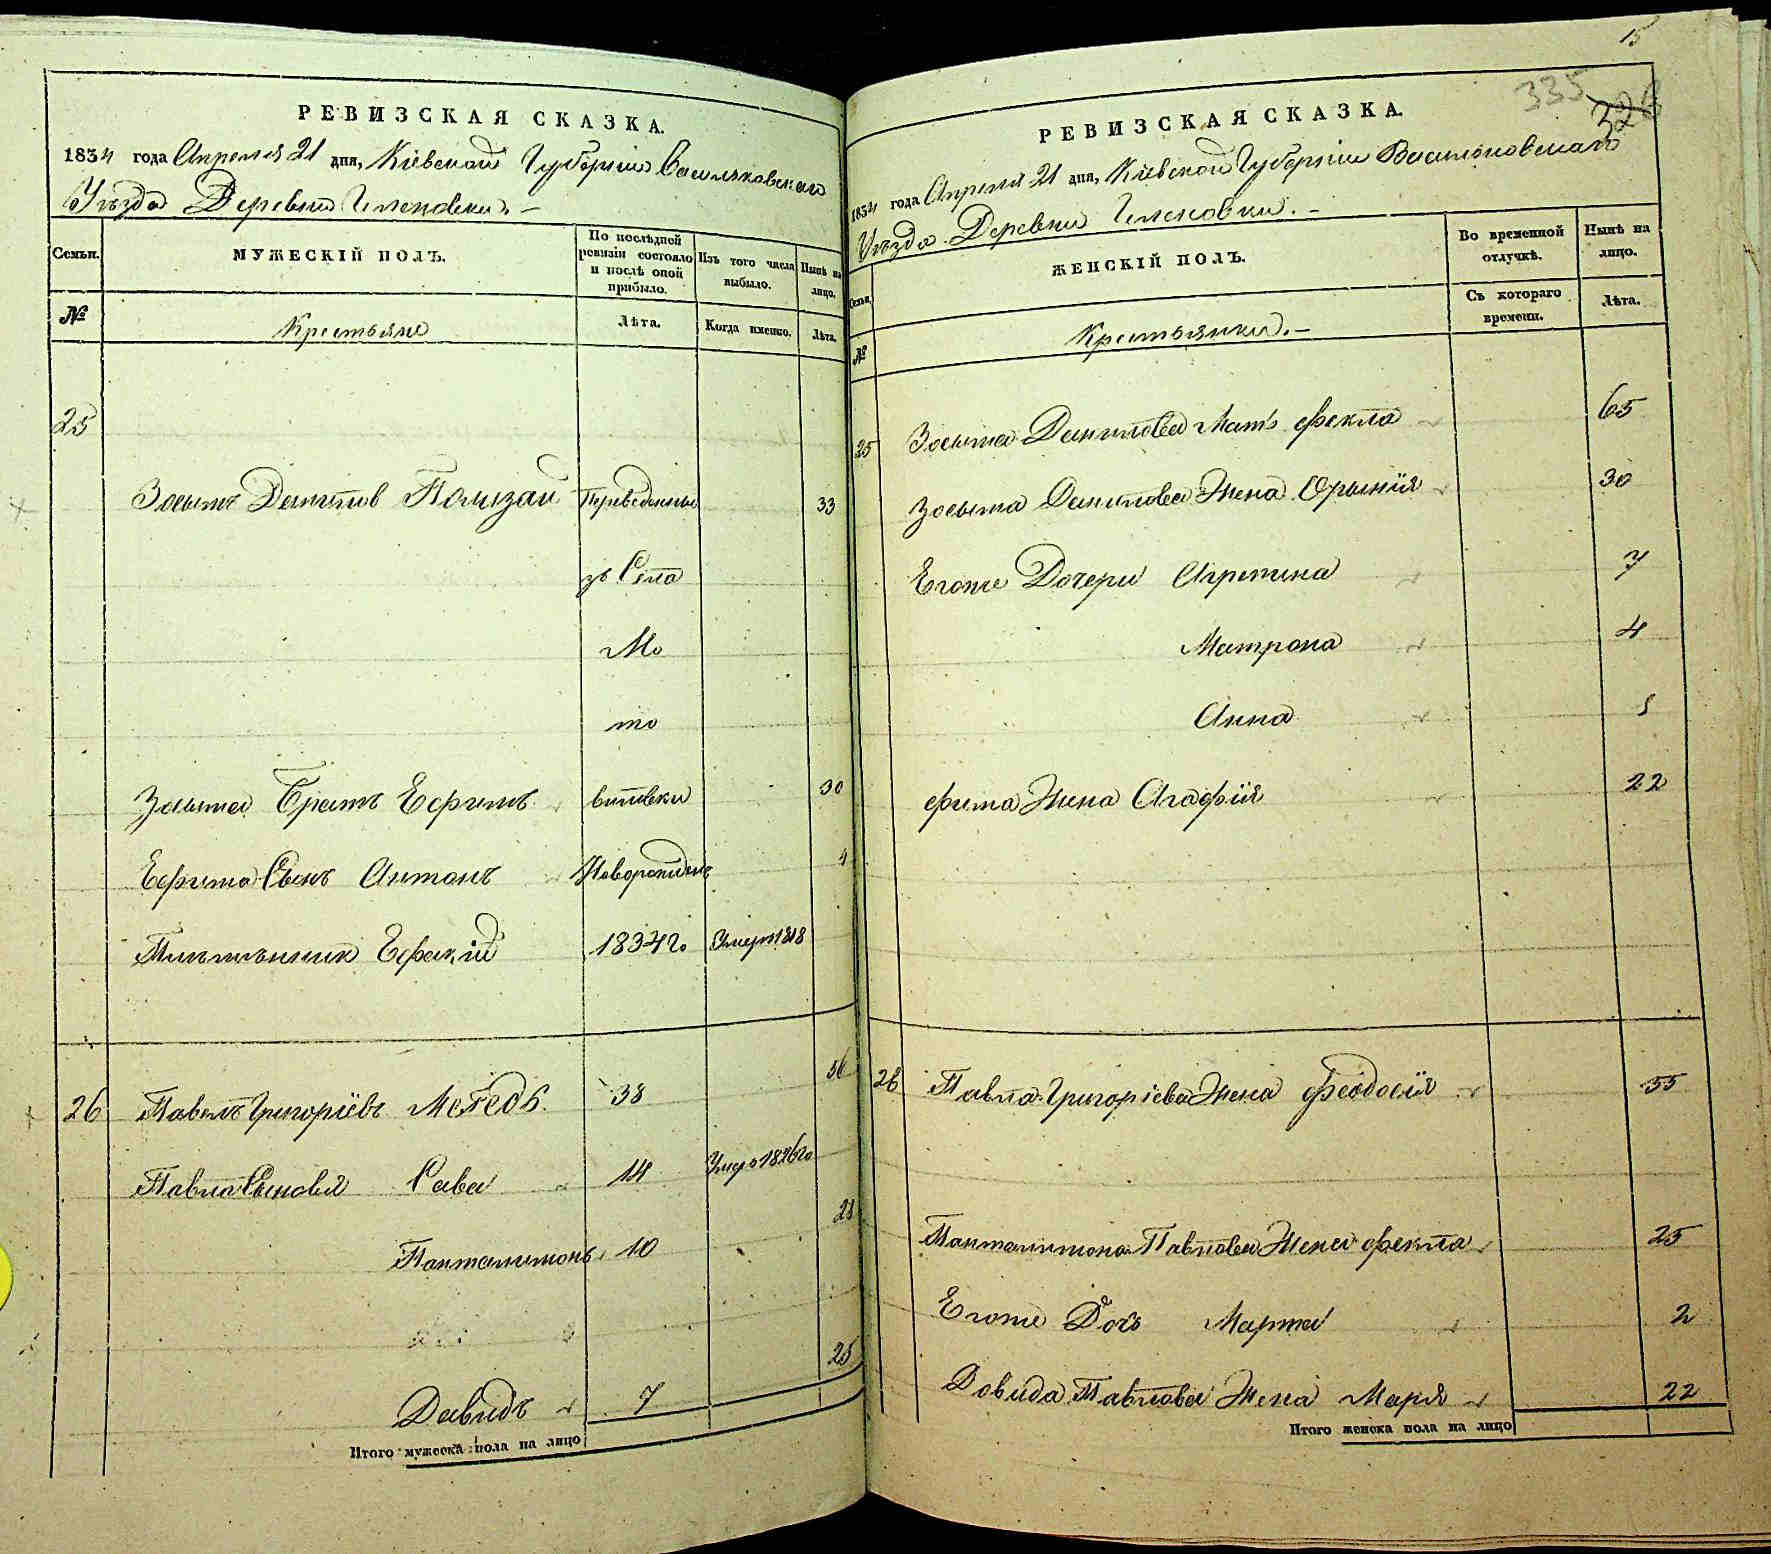 РЕВИЗСКАЯ СКАЗКА.
1834 года Апреля 21 дня, Кіевской Губерніи Васильковскаго
Уѣзда Деревни
Семьи.
МУЖЕСКІЙ ПОЛЪ.
По послѣдней ревизіи состояло и послѣ оной прибыло.
Изъ того числа выбыло.
Нынѣ на лицо.
№
Крестьяне
Лѣта.
Когда именно.
Лѣта.
25
Зосымъ Данилов Переведенные 33
зъ Села
Мо
то
Зосыма Братъ Ефимъ виловки 30
Ефима Сынъ Антонъ Новорожденъ 4
1834го Умеръ 1818
26 Павелъ Григоріевъ 38 56
Павла Сыновя Сава 14 Умеръ 1826го
Панталимонъ 10 28
Давидъ 7 25
Итого мужеска пола на лицо
15
335
326
РЕВИЗСКАЯ СКАЗКА.
1834 года Апреля 21 дня, Кіевской Губерніи Васильковскаго
Уѣзда Деревни
Семьи.
ЖЕНСКІЙ ПОЛЪ.
Во временной отлучкѣ.
Нынѣ на лицо.
№
Крестьянки.
Съ котораго времени.
Лѣта.
25 Зосыма Данилова Мать Фекла 65
Зосыма Данилова Жена Орынія 30
Егоже Дочери Агрепина 7
Матрона 4
Анна 1
Фима Жена Агафія 22
26 Павла Григоріева Жена Феодосія 55
Панталимона Павлова Жена Фекла 25
Егоже Дочь Марта 2
Довида Павлова Жена Марія 22
Итого женска пола на лицо